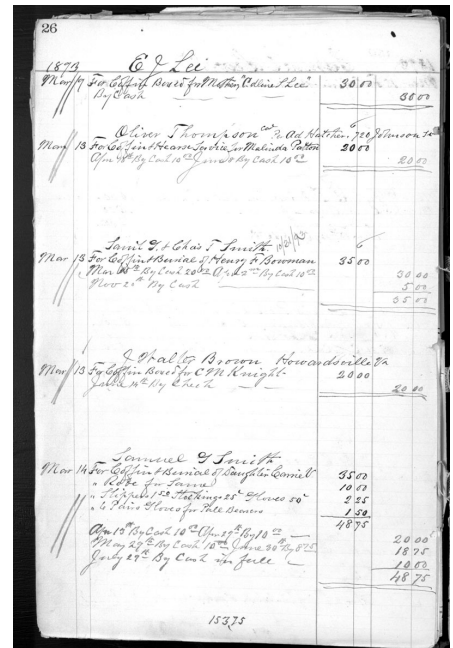 26
1893 E J Lee
Mar 7 For Coffin Boxed for Mother "Edline S Lee" 30 00
By Cash 30 00
Oliver Thompson Col Ad Hatcher 720 Johnson
Mar 13 For Coffin & Hearse Service for Malinda Patton 20 00
Apr 8th By Cash 10 00 June 8 By Cash 10 00 20 00
Saml G. & Chas T Smith 10/21/93
Mar 13 For Coffin & Burial of Henry F Bowman 35 00
Mar By Cash 20 00 Apr 2nd By Cash 10 00 30 00
Nov 2nd By Cash 5 00
35 00
J Walter Brown Howardsville Va
Mar 13 For Coffin Boxed for C M Knight 20 00
June 14th By Check 20 00
Samuel G Smith
Mar 14 For Coffin & Burial of Daughter Carrie V 35 00
" Robe for Same 10 00
" Slippers 1 50 Stockings 25c Gloves 50c 2 25
" 6 Pairs Gloves for Pall Bearers 1 50
48 75
Apr 15th By Cash 10 00 Apr 29th By 10 00 20 00
May 29th By Cash 10 00 June 30th By 8 75 18 75
July 29th By Cash in full 10 00
48 75
153,75